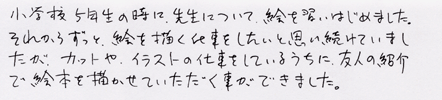 小学校5年生の時に、先生について、絵を習いはじめました。
それからずっと、絵を描く仕事をしたいと思い続けていまし
たが、カットや、イラストの仕事をしているうちに、友人の紹介
で絵本を描かせていただく事ができました。